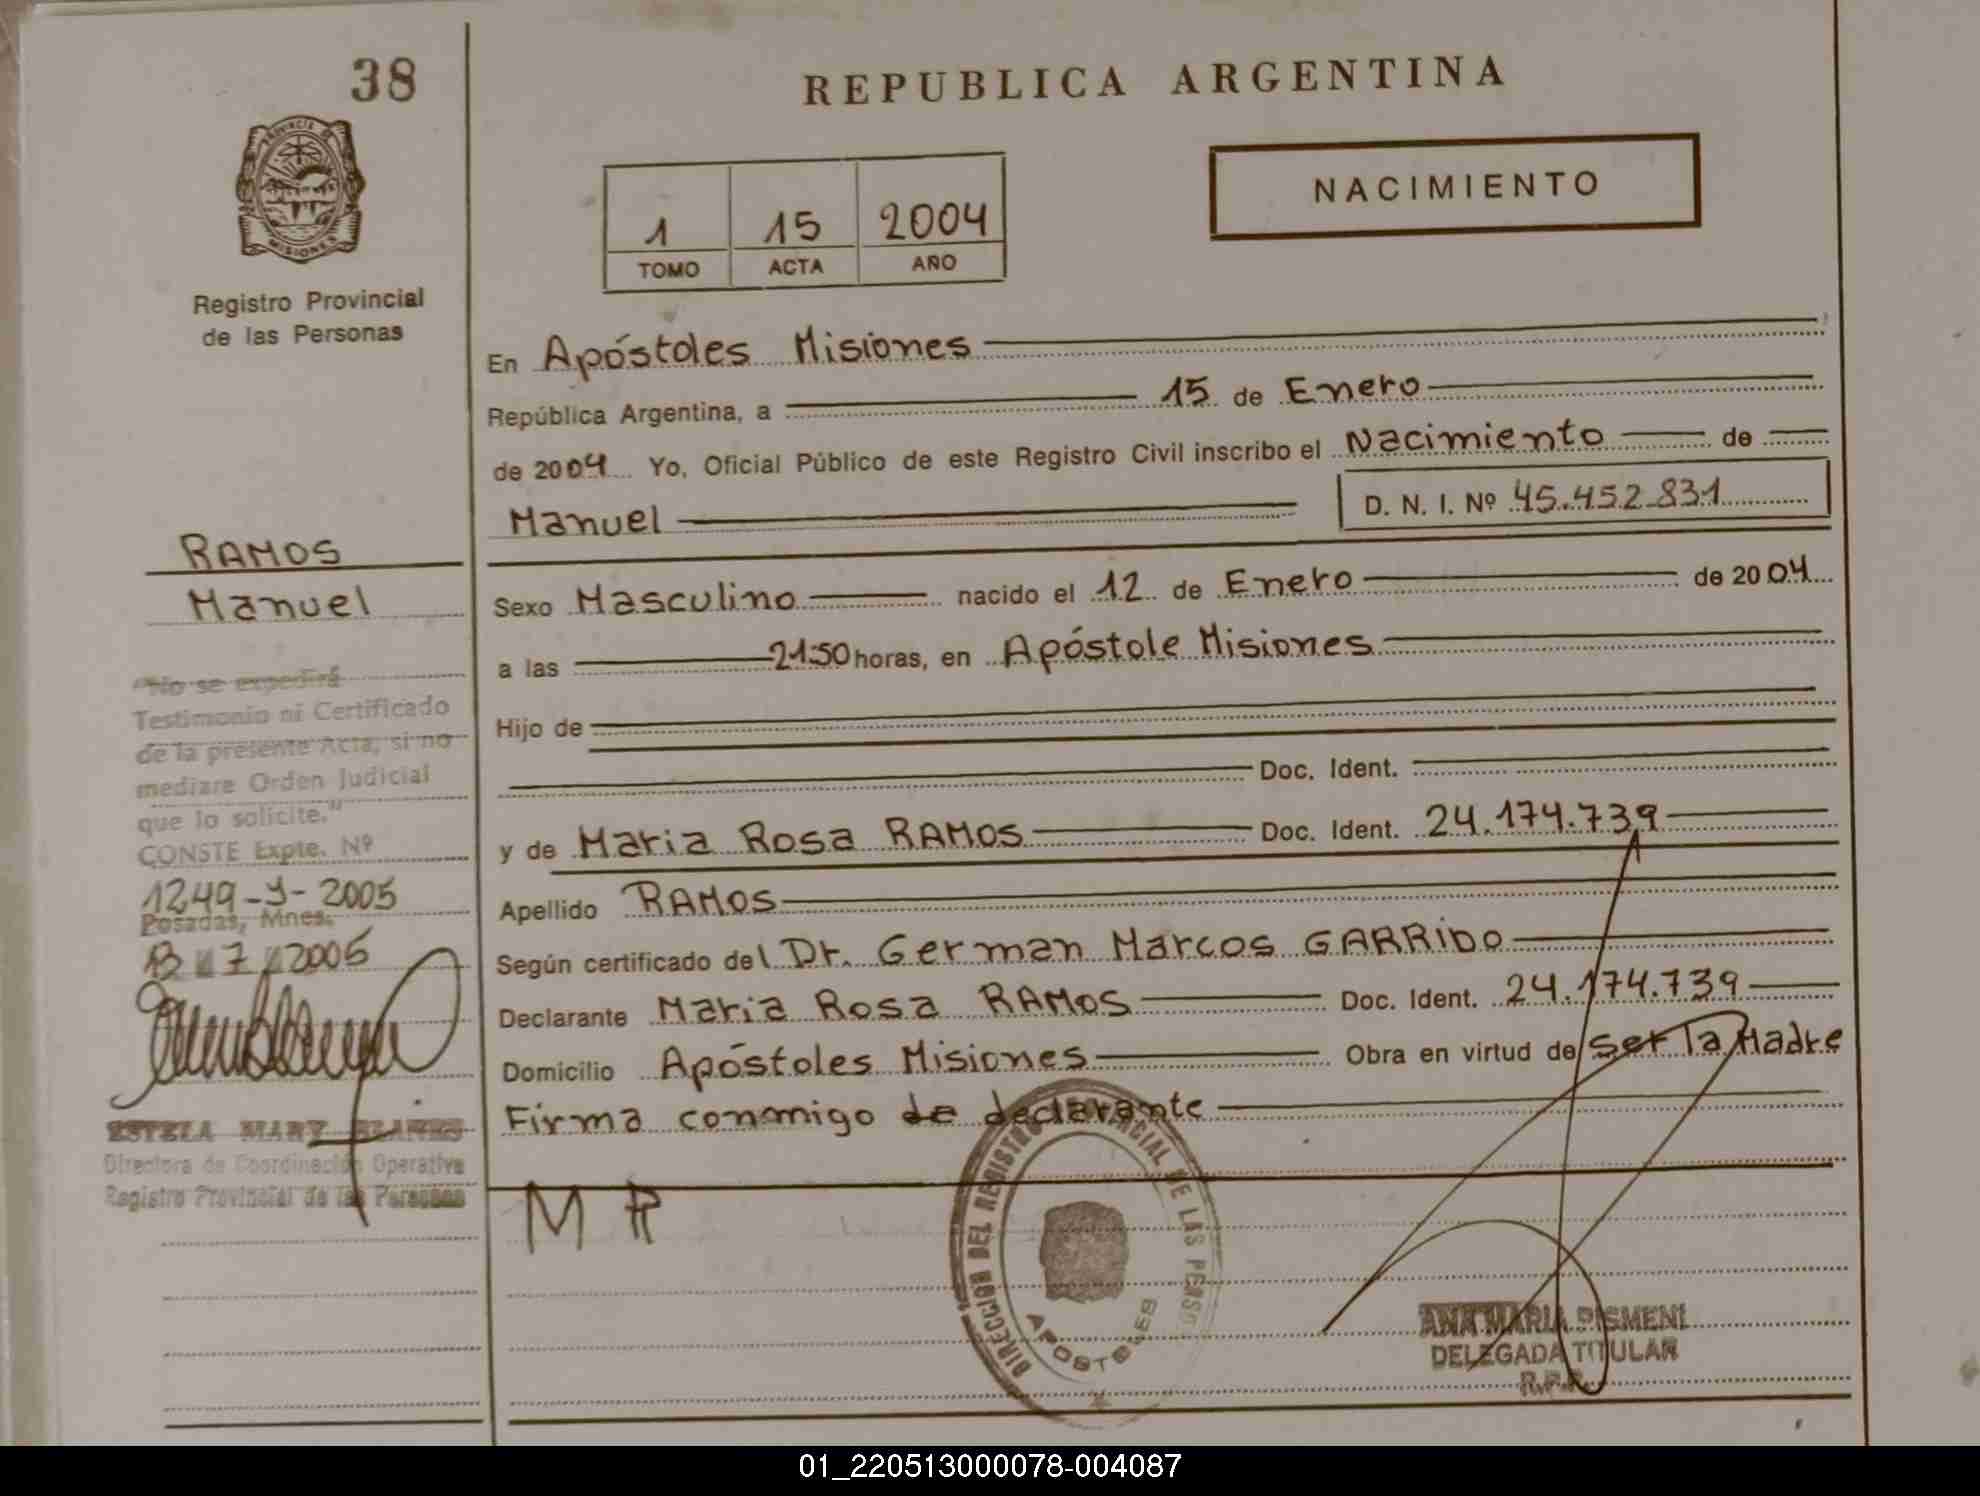 38
REPUBLICA ARGENTINA
PROVINCIA DE
MISIONES
Registro Provincial
de las Personas
1 15 2004
TOMO ACTA AÑO
NACIMIENTO
En Apóstoles Misiones
República Argentina, a 15 de Enero
de 2004 Yo, Oficial Público de este Registro Civil inscribo el Nacimiento de
Manuel D. N. I. Nº 45.452.831
Sexo Masculino nacido el 12 de Enero de 2004
a las 21:50 horas, en Apóstole Misiones
Hijo de
Doc. Ident.
y de Maria Rosa RAMOS Doc. Ident. 24.174.739
Apellido RAMOS
Según certificado del Dr. German Marcos GARRIDO
Declarante Maria Rosa RAMOS Doc. Ident. 24.174.739
Domicilio Apóstoles Misiones Obra en virtud de ser la Madre
Firma conmigo de declarante
M R
RAMOS
Manuel
"No se expedirá
Testimonio ni Certificado
de la presente Acta, si no
mediare Orden Judicial
que lo solicite."
CONSTE Expte. Nº
1249-Y-2005
Posadas, Mnes.
13 7 2005
ESTELA MARY
Directora de Coordinación Operativa
Registro Provincial de las Personas
DIRECCION DEL REGISTRO PROVINCIAL DE LAS PERSO
APOSTOLES
ANA MARIA PISMENI
DELEGADA TITULAR
R.P.P.
01_220513000078-004087